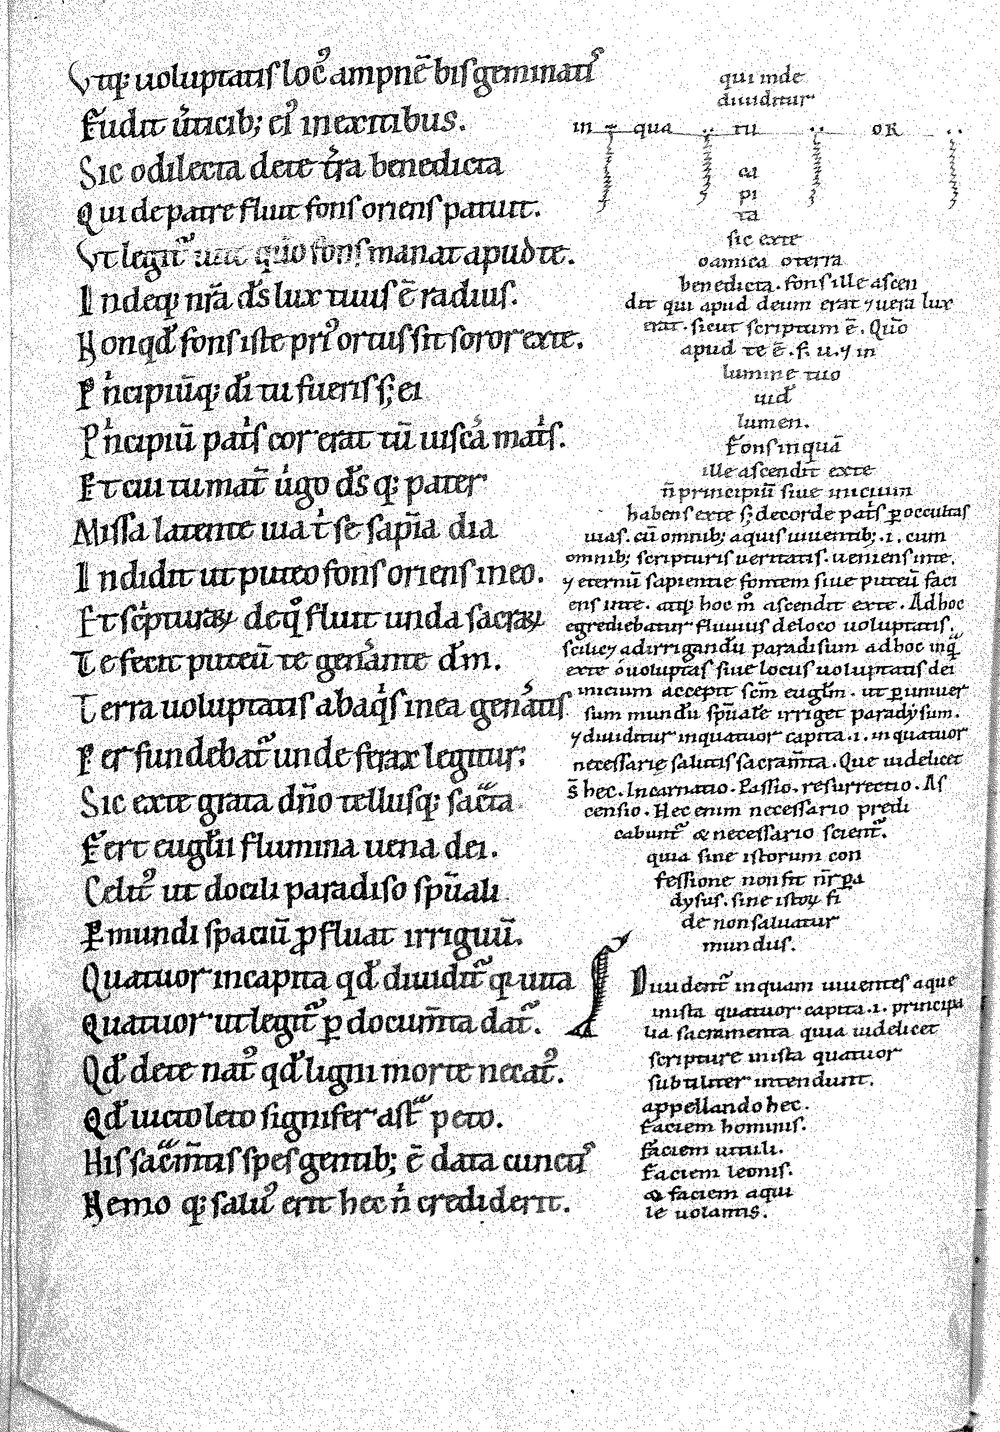 Vtq; uoluptatis loc᾽ ampnē bis geminati᾽
Fudit u̾ticib; ei᾽ in exitibus.
Sic o dilecta de te t̾ra benedicta
Qui de patre fluit fons oriens patuit.
Vt legit᷑ fons manat apud te.
Indeq; nr̄a d̄s lux tuus ē radius.
Non qd̄ fons iste pri᾽ ortus sit soror ex te.
P̾ncipiūq; d̄i tu fueris s; ei
P̾ncipiū pat̾s cor erat tū uiscā mat̾s.
Et cui tu mat̄ u̾go d̄s q; pater
Missa latente uia t̾ se sap̄ia dia
Indidit ut puteo fons oriens in eo.
Et sc̾pturaꝝ de q᷒ fluit unda sacraꝝ
Te fecit puteū te gen̾ante dm̄.
Terra uoluptatis ab aq̾s in ea gen̾atis
Perfundebat᷑ unde ferax legitur;
Sic ex te grata dn̄o tellusq; sac̾ta
Fert eugl̄ii flumina uena dei.
Celit᾽ ut docili paradiso sp̄uali
Ꝑ mundi spaciū ꝓfluat irriguū.
Quatuor in capita qd̄ diuidit᷑ q; uita
Quatuor ut legit᷑ ꝑ documn̄ta dat᷑.
Qd̄ de te nat᾽ qd̄ ligni morte necat᾽.
Qd̄ uicto leto signifer astᷓ peto.
His sacᷓm̄tis spes gentib; ē data cuncti᾽
Nemo q; salu᾽ erit hec n̾ crediderit.
qui inde
diuiditur
in qua tu or
ca
pi
ta
sic ex te
o amica o terra
benedicta. fons ille ascen
dit qui apud deum erat ⁊ uera lux
erat. sicut scriptum ē. Qūo
apud te ē. f. u. ⁊ in
lumine tuo
uid̄
lumen.
Fons inquā
ille ascendit ex te
n̄ principiū siue inicium
habens ex te s; de corde pat̾s ꝑ occultas
uias. cū omnib; aquis uiuentib; .i. cum
omnib; scripturis ueritatis. ueniens in te.
⁊ eternū sapientie fontem siue puteū faci
ens in te. atq; hoc m̊ ascendit ex te. Ad hoc
egrediebatur fluuius de loco uoluptatis.
scilic⁊ ad irrigandū paradisum ad hoc inq̄
ex te o uoluptas siue locus uoluptatis dei
inicium accepit sc̄m eugl̄m. ut ꝑ uniuer
sum mundū sp̄uale irriget paradysum.
⁊ diuiditur in quatuor capita .i. in quatuor
necessarię salutis sacram̄ta. Que uidelicet
s̄ hec. Incarnatio. Passio. resurrectio. As
censio. Hec enim necessario predi
cabunt᷑ & necessario scient᷑.
quia sine istorum con
fessione non fit nr̄ pa
dysus. sine istoꝝ fi
de non saluatur
mundus.
Diuident᷑ inquam uiuentes aque
in ista quatuor capita .i. principa
lia sacramenta quia uidelicet
scripture in ista quatuor
subtiliter intendunt.
appellando hec.
Faciem hominis.
Faciem uituli.
Faciem leonis.
& faciem aqui
le uolantis.